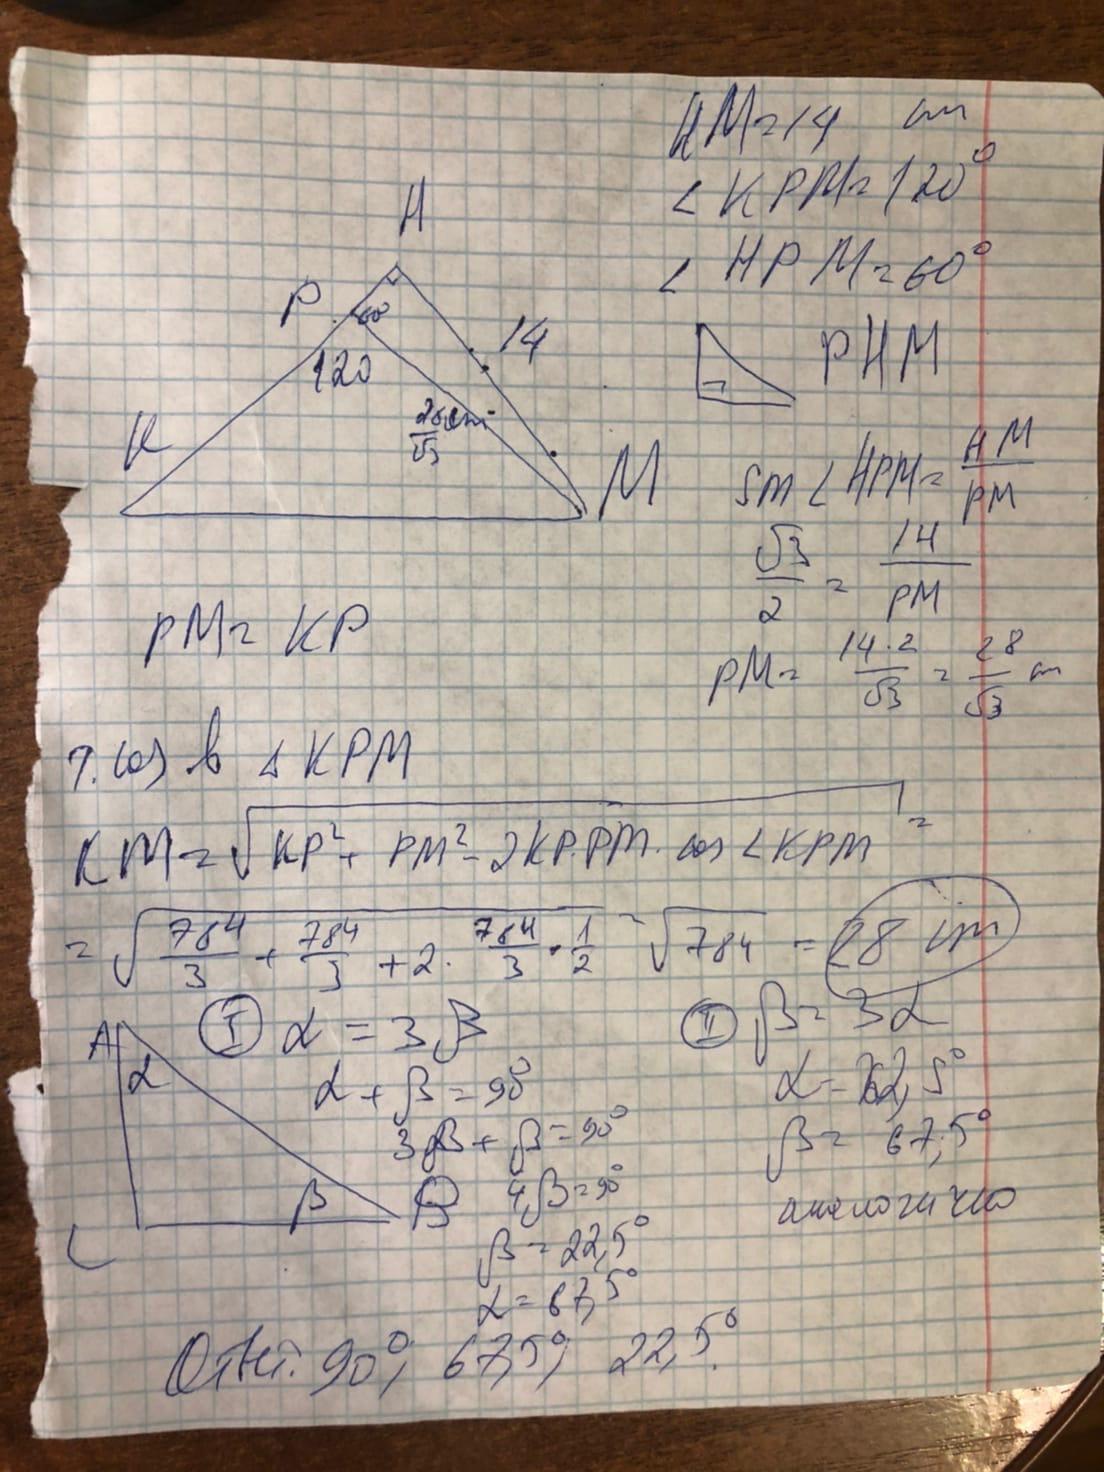 HM=14 cm
<KPM=120°
<HPM=60°
H
P
60
120
14
28cm
√3
K
M
PHM
sin<HPM=HM/PM
√3/2=14/PM
PM=14·2/√3=28/√3 cm
PM=KP
т.cos в △KPM
KM=√KP²+PM²-2KP·PM·cos<KPM=
=√784/3+784/3+2·784/3·1/2=√784=28 cm
A
α
β
B
C
I α=3β
α+β=90°
3β+β=90°
4β=90°
β=22,5°
α=67,5°
II β=3α
α=22,5°
β=67,5°
аналогично
Ответ: 90°; 67,5°; 22,5°.